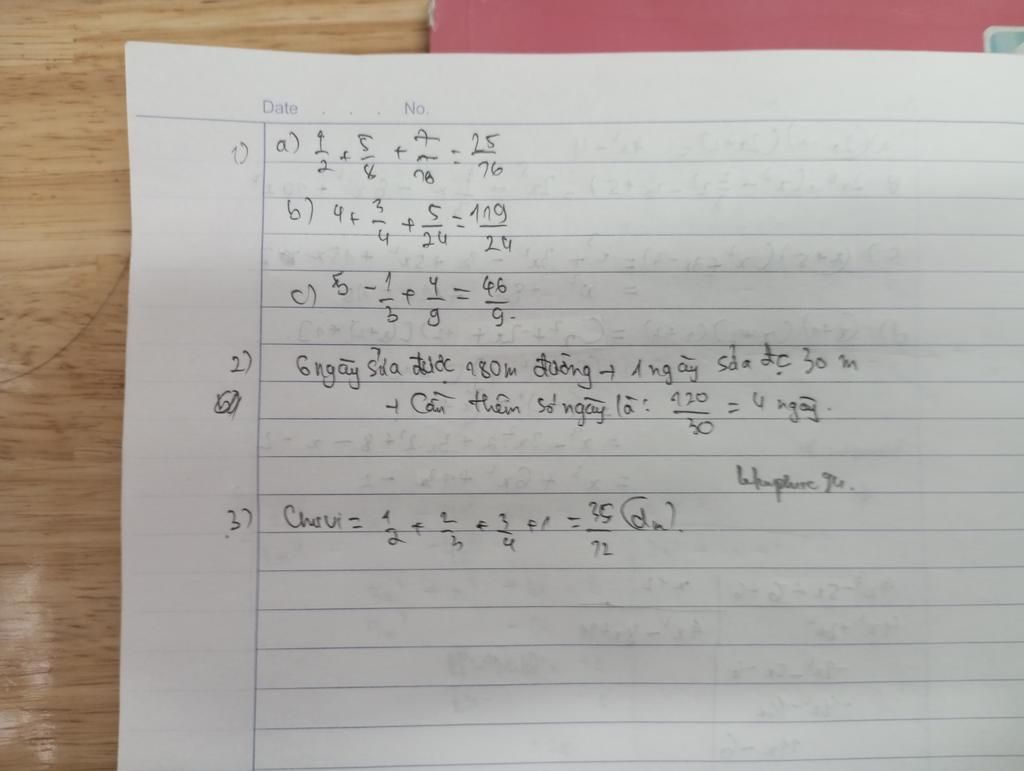 Date . . . No.
1) a) 1/2 + 5/8 + 7/16 = 25/16
b) 4 + 3/4 + 5/24 = 119/24
c) 5 - 1/3 + 4/9 = 46/9.
2) 6 ngày sửa được 180m đường → 1 ngày sửa đc 30 m
→ Cần thêm số ngày là: 120/30 = 4 ngày.
3) Chu vi = 1/2 + 2/3 + 3/4 + 1 = 35/12 (dm).